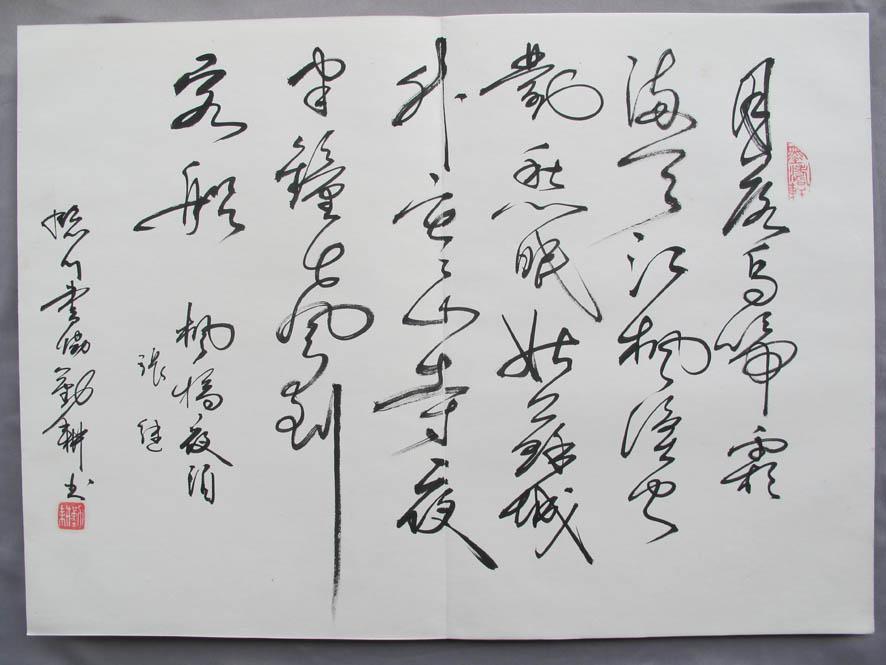 月落烏啼霜
滿天江楓漁火
對愁眠姑蘇城
外寒山寺夜
半鐘聲到
客船
楓橋夜泊
張繼
門書協勤耕书
勤耕